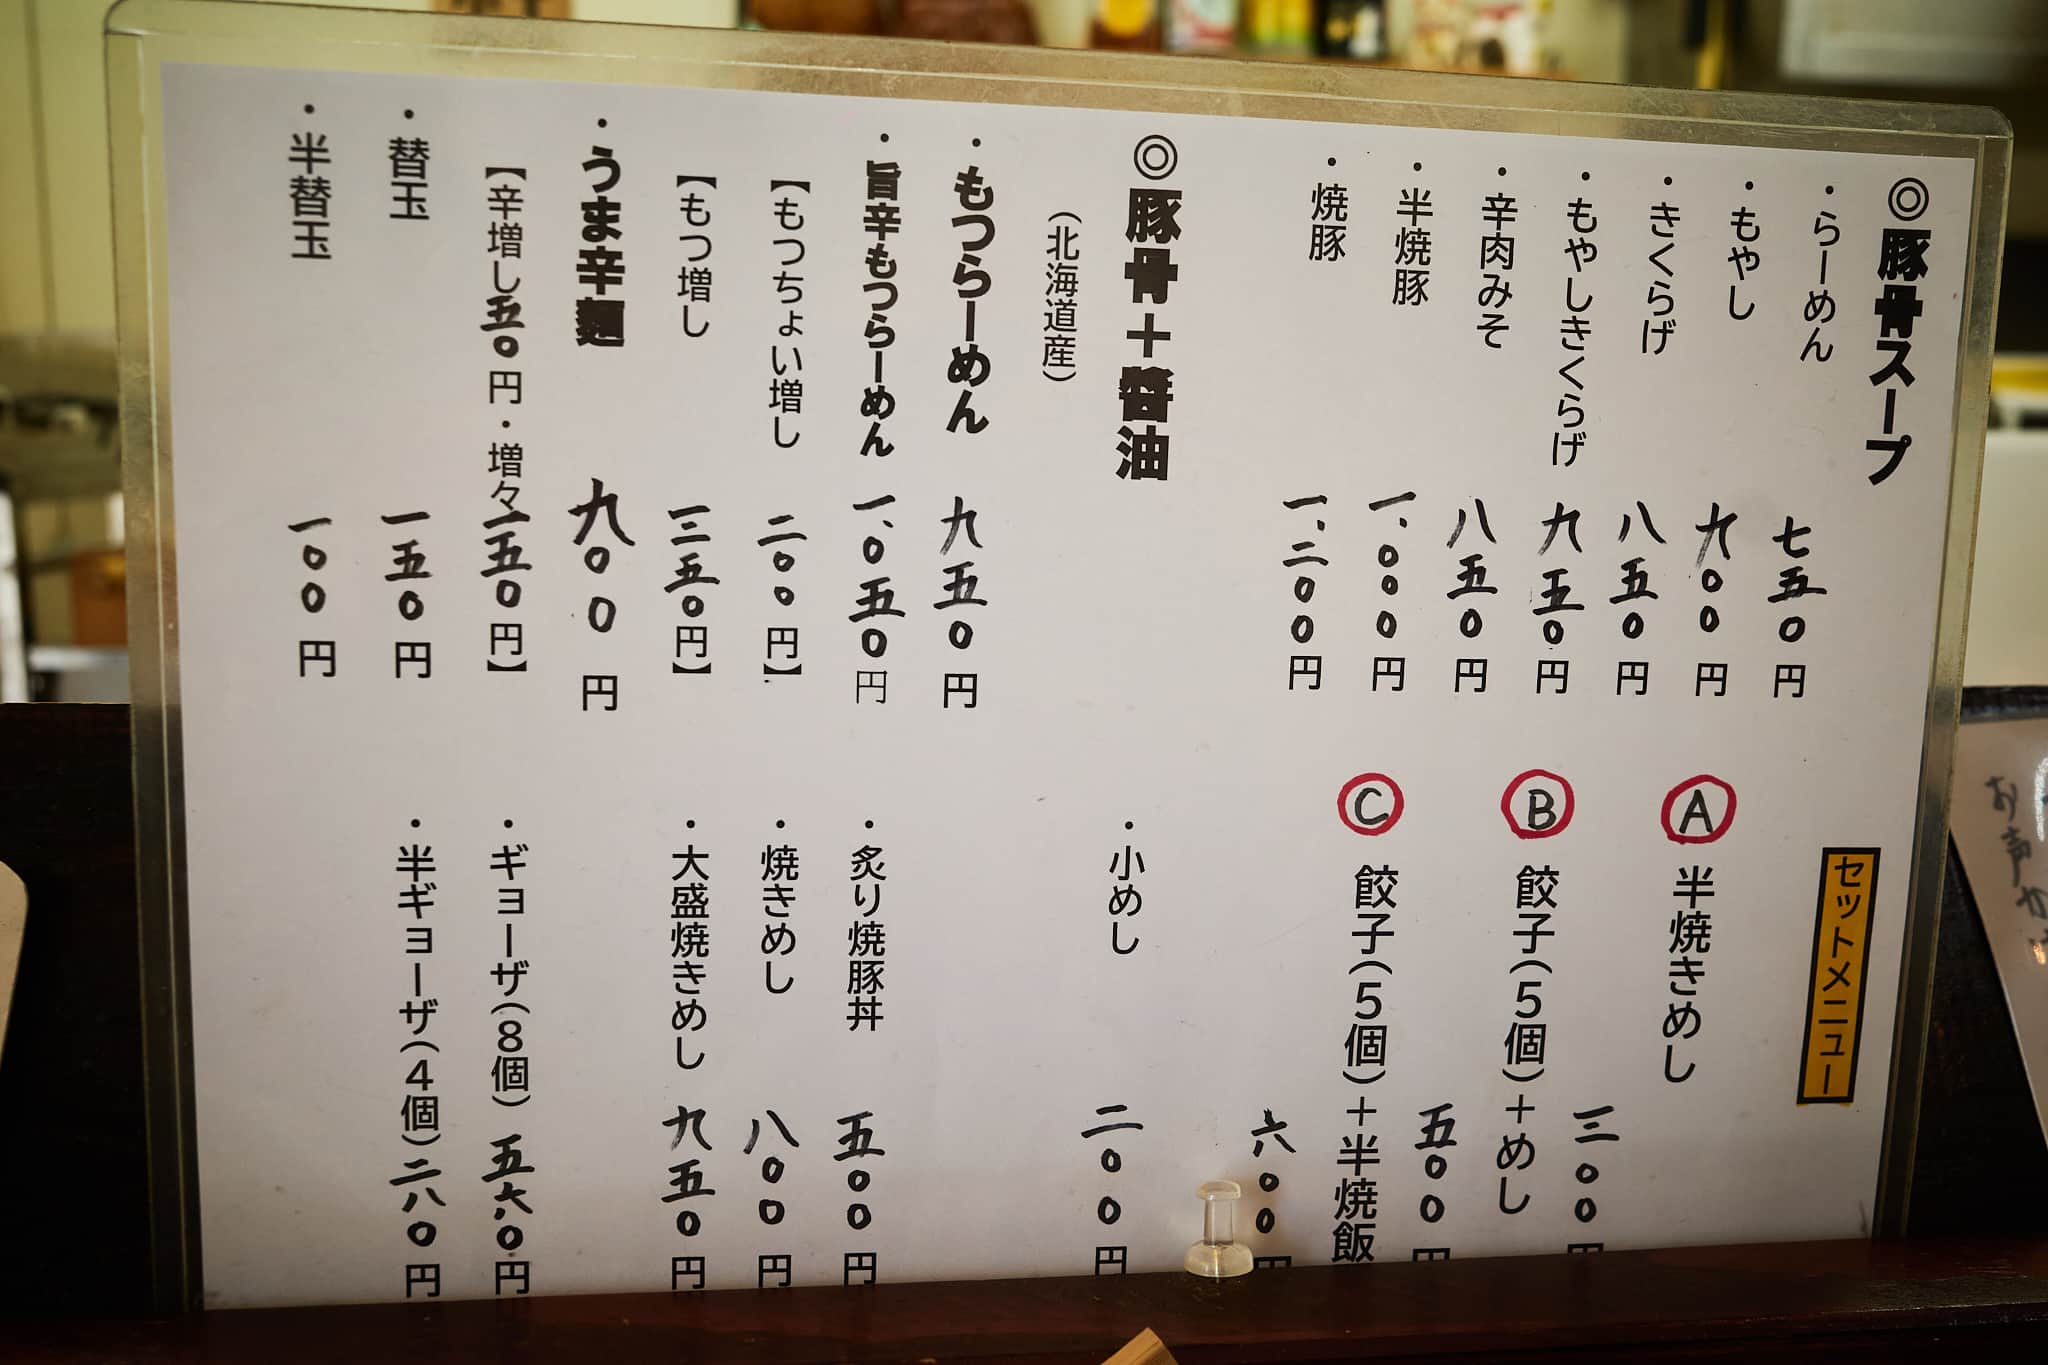 ◎豚骨スープ
・らーめん 七五〇円
・もやし 九〇〇円
・きくらげ 八五〇円
・もやしきくらげ 九五〇円
・辛肉みそ 八五〇円
・半焼豚 一、〇〇〇円
・焼豚 一、二〇〇円
◎豚骨+醬油
(北海道産)
・もつらーめん 九五〇円
・旨辛もつらーめん 一、〇五〇円
【もつちょい増し 二〇〇円】
【もつ増し 三五〇円】
・うま辛麺 九〇〇円
【辛増し五〇円・増々一五〇円】
・替玉 一五〇円
・半替玉 一〇〇円
セットメニュー
Ⓐ 半焼きめし
三〇〇円
Ⓑ 餃子(5個)+めし
五〇〇円
Ⓒ 餃子(5個)+半焼飯
六〇〇円
・小めし 二〇〇円
・炙り焼豚丼 五〇〇円
・焼きめし 八〇〇円
・大盛焼きめし 九五〇円
・ギョーザ(8個) 五六〇円
・半ギョーザ(4個) 二八〇円